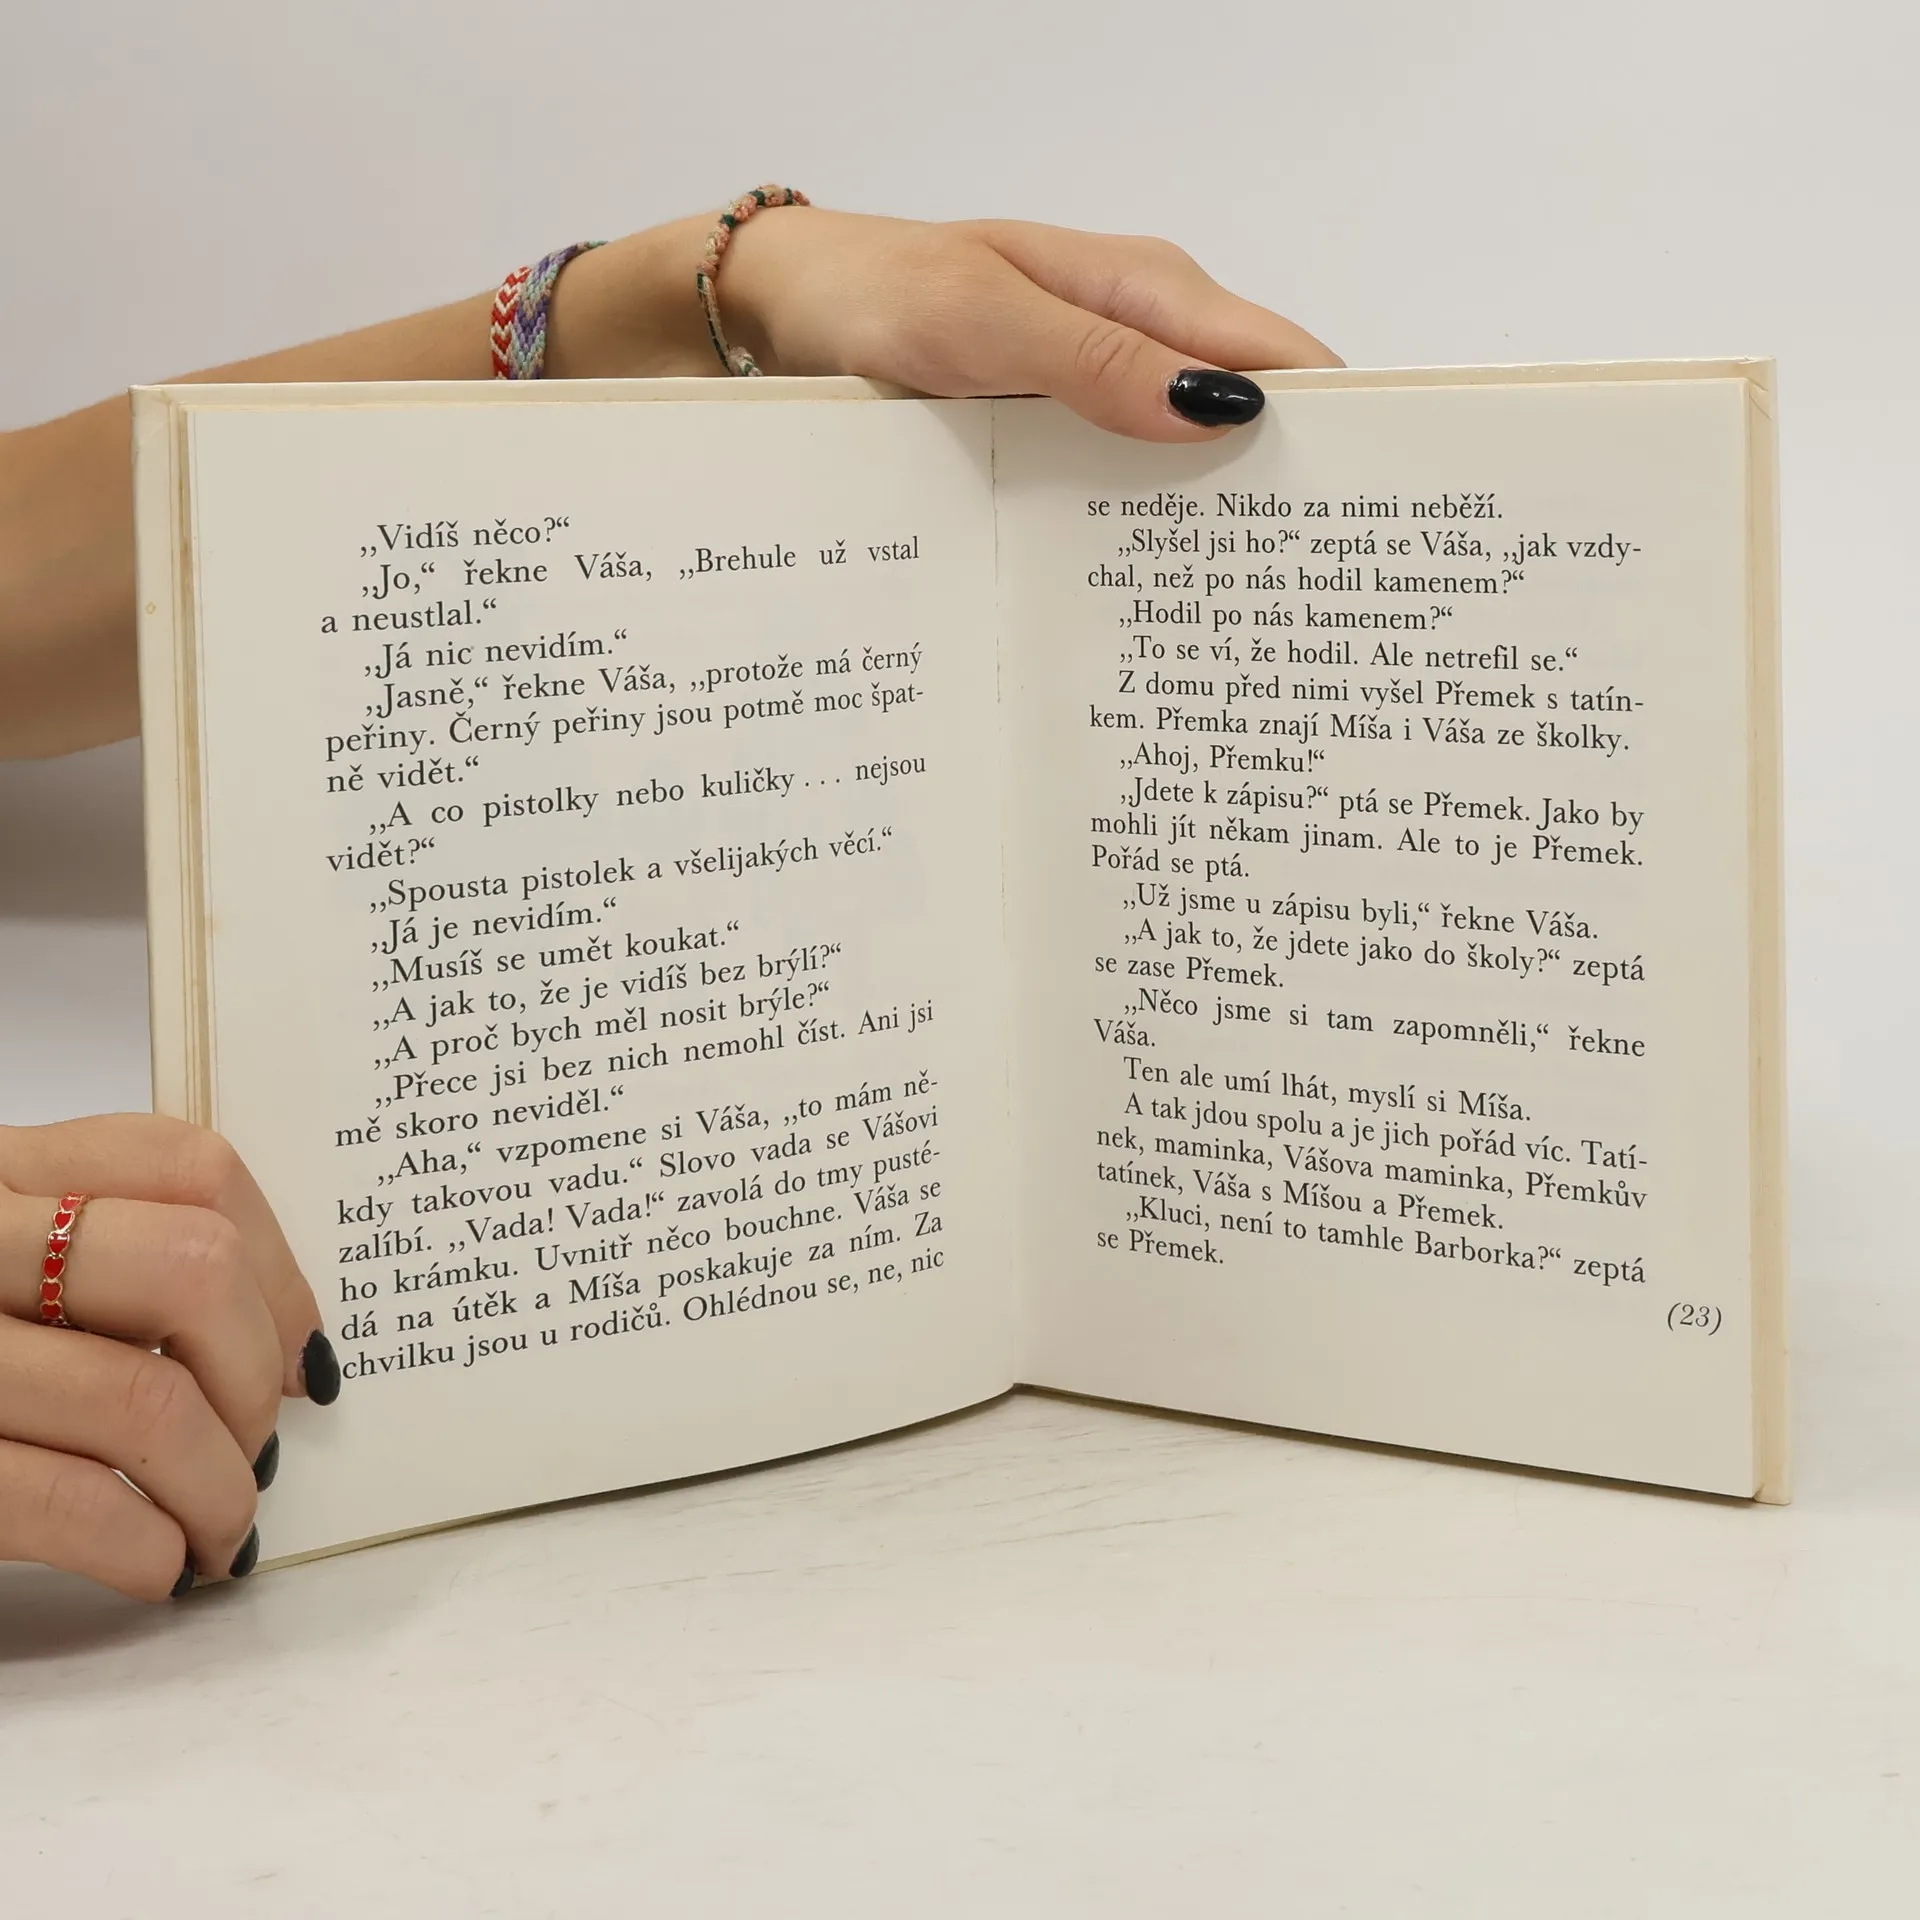 „Vidíš něco?“
„Jo,“ řekne Váša, „Brehule už vstal
a neustlal.“
„Já nic nevidím.“
„Jasně,“ řekne Váša, „protože má černý
peřiny. Černý peřiny jsou potmě moc špat-
ně vidět.“
„A co pistolky nebo kuličky... nejsou
vidět?“
„Spousta pistolek a všelijakých věcí.“
„Já je nevidím.“
„Musíš se umět koukat.“
„A jak to, že je vidíš bez brýlí?“
„A proč bych měl nosit brýle?“
„Přece jsi bez nich nemohl číst. Ani jsi
mě skoro neviděl.“
„Aha,“ vzpomene si Váša, „to mám ně-
kdy takovou vadu.“ Slovo vada se Vášovi
zalíbí. „Vada! Vada!“ zavolá do tmy pusté-
ho krámku. Uvnitř něco bouchne. Váša se
dá na útěk a Míša poskakuje za ním. Za
chvilku jsou u rodičů. Ohlédnou se, ne, nic
se neděje. Nikdo za nimi neběží.
„Slyšel jsi ho?“ zeptá se Váša, „jak vzdy-
chal, než po nás hodil kamenem?“
„Hodil po nás kamenem?“
„To se ví, že hodil. Ale netrefil se.“
Z domu před nimi vyšel Přemek s tatín-
kem. Přemka znají Míša i Váša ze školky.
„Ahoj, Přemku!“
„Jdete k zápisu?“ ptá se Přemek. Jako by
mohli jít někam jinam. Ale to je Přemek.
Pořád se ptá.
„Už jsme u zápisu byli,“ řekne Váša.
„A jak to, že jdete jako do školy?“ zeptá
se zase Přemek.
„Něco jsme si tam zapomněli,“ řekne
Váša.
Ten ale umí lhát, myslí si Míša.
A tak jdou spolu a je jich pořád víc. Tatí-
nek, maminka, Vášova maminka, Přemkův
tatínek, Váša s Míšou a Přemek.
„Kluci, není to tamhle Barborka?“ zeptá
se Přemek.
(23)